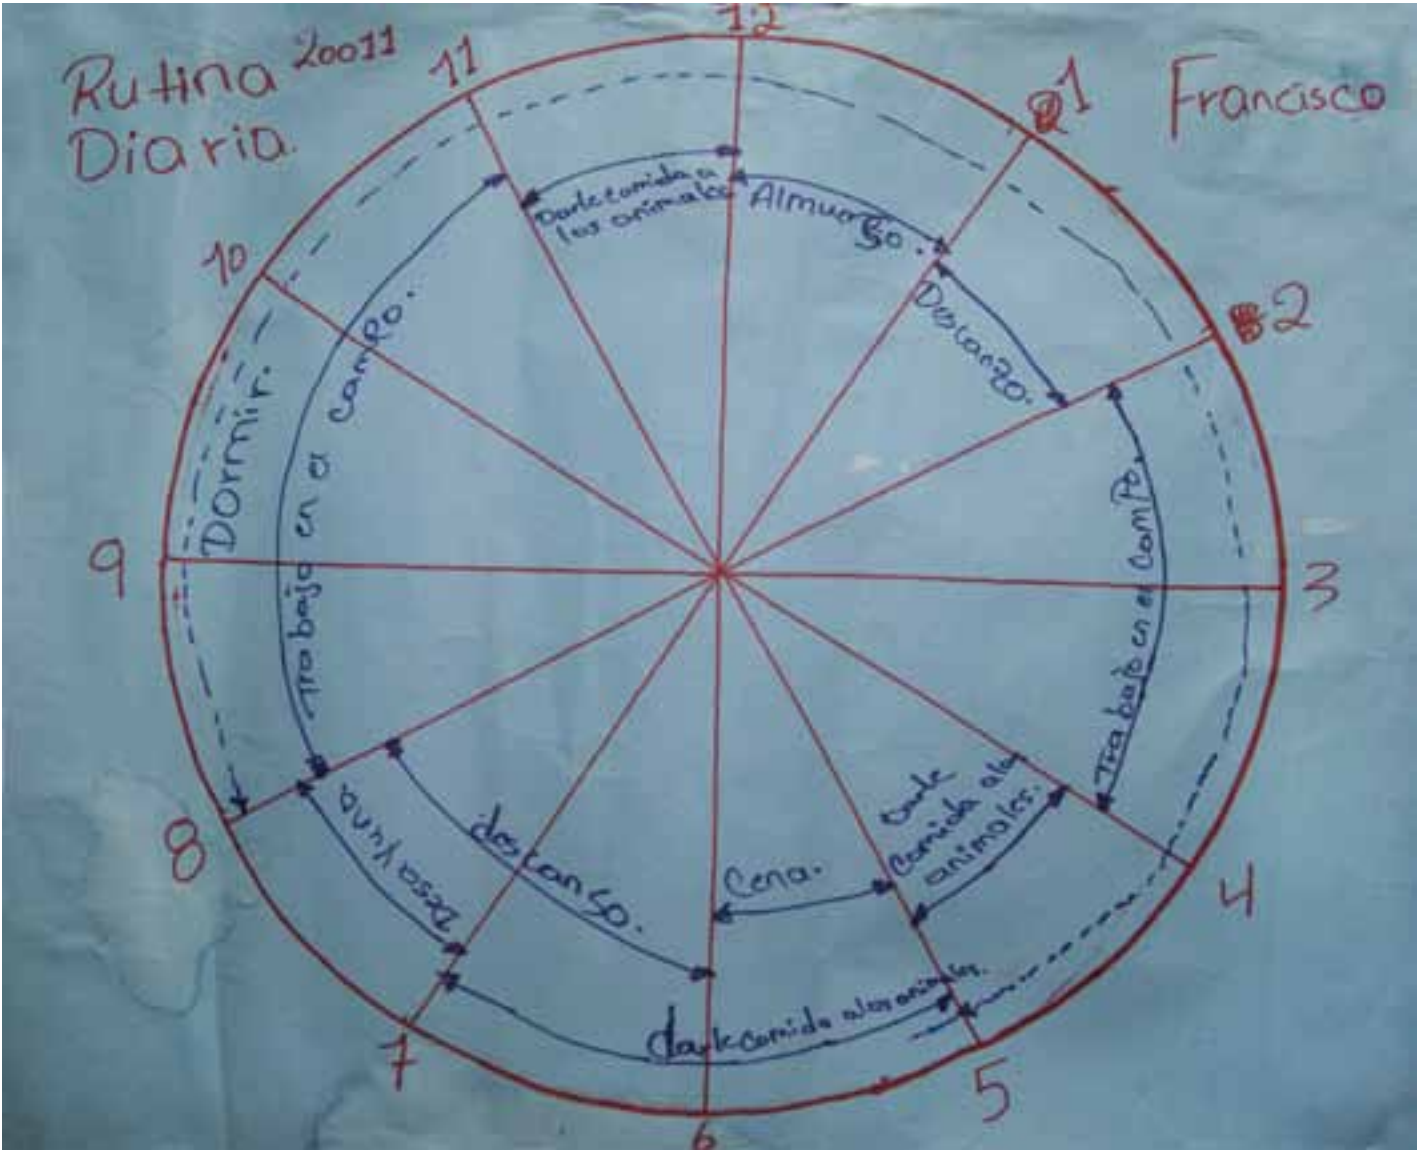 Rutina 20011
Diaria.
Francisco
12
1
2
3
4
5
6
7
8
9
10
11
Darle comida a
las animales
Almuerso.
Descanzo.
Trabajo en el campo.
Darle
comida alos
animales.
Cena.
darle comida alos animales.
descanso.
Desayuno.
Trabajo en a campo.
Dormir.